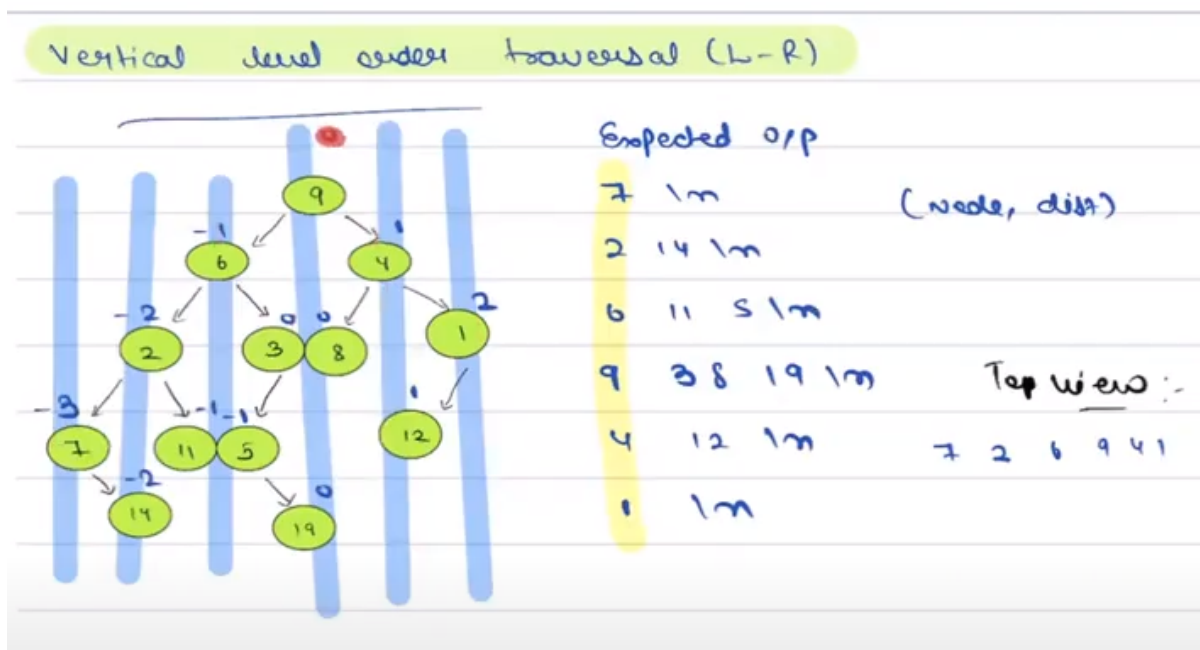 Vertical level order traversal (L-R)
9
-1 1
6 4
-2 0 0 2
2 3 8 1
-3 -1 -1 1
7 11 5 12
-2 0
14 19
Expected o/p
7 \n
2 14 \n
6 11 5 \n
9 3 8 19 \n
4 12 \n
1 \n
(node, dist)
Top view :-
7 2 6 9 4 1